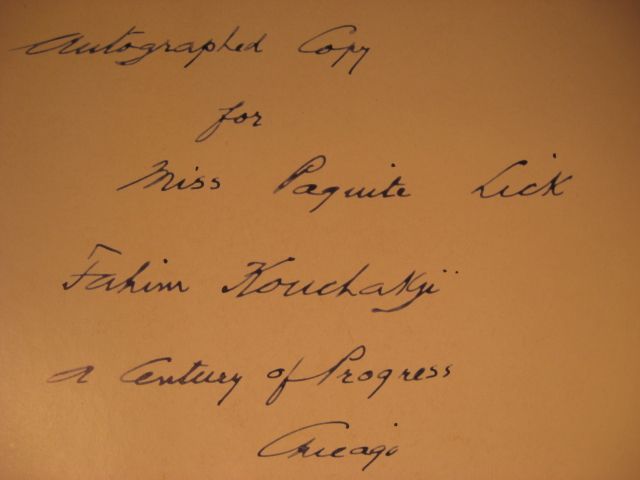 Autographed Copy
for
Miss Paquite Lick
Fahim Kouchakji
A Century of Progress
Chicago